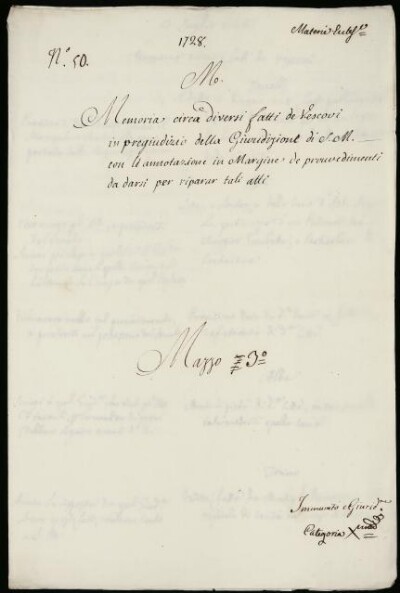 1728.
Materie Eccl.
N.° 50.
M.°
Memoria circa diversi fatti de Vescovi
in pregiudizio della Giurisdizione di S. M.
con le annotazione in Margine de provvedimenti
da darsi per riparar tali atti
Mazzo 3.°
Immunità e Giurisd.
Categoria